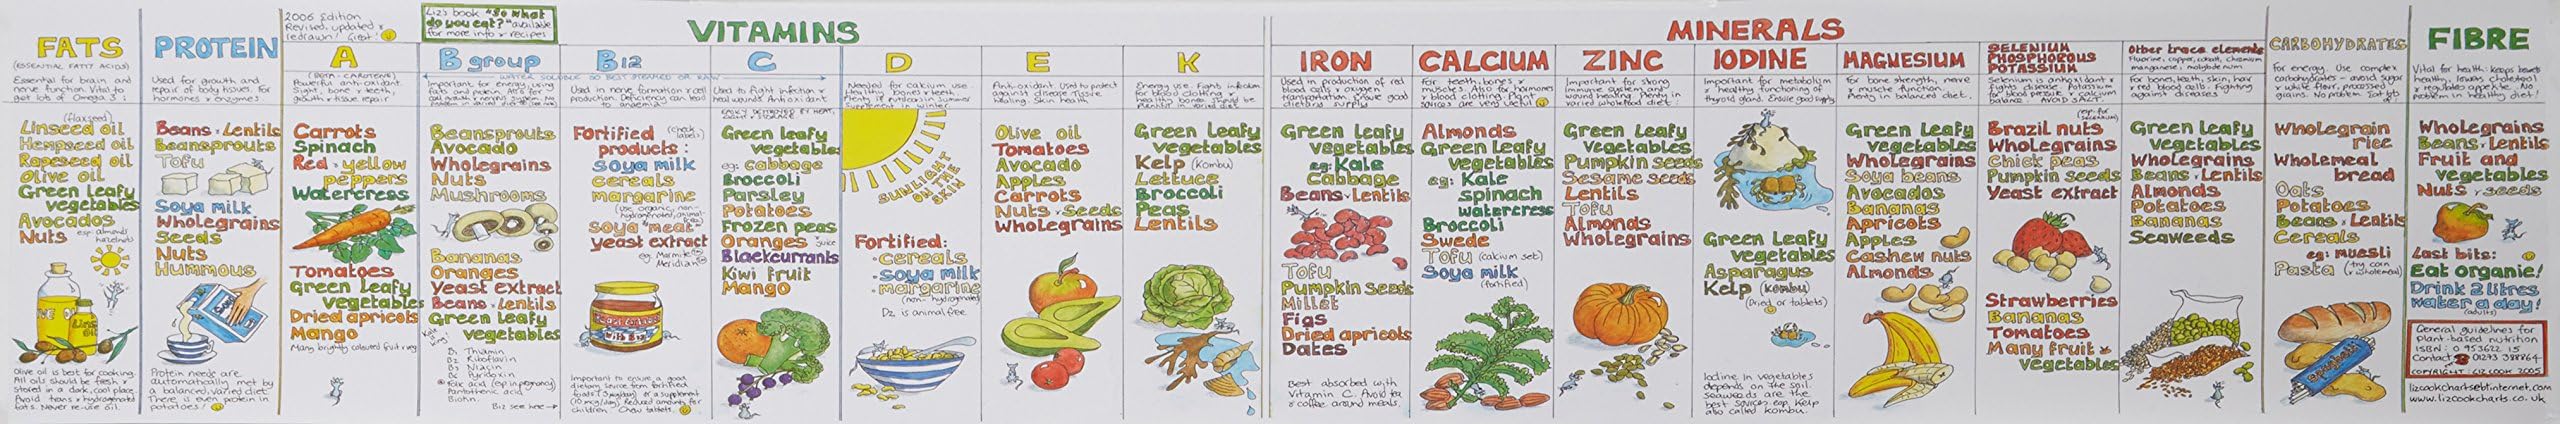 2006 Edition
Revised, updated &
redrawn! Great!
Liz's book "So what
do you eat?" available
for more info & recipes
VITAMINS
MINERALS
FATS
(ESSENTIAL FATTY ACIDS)
Essential for brain and
nerve function. Vital to
get lots of Omega 3 :
(flaxseed)
Linseed oil
Hempseed oil
Rapeseed oil
Olive oil
Green leafy
vegetables
Avocados
Nuts esp. almonds
hazelnuts
Olive oil is best for cooking.
All oils should be fresh &
stored in a dark, cool place.
Avoid trans & hydrogenated
fats. Never re-use oil.
PROTEIN
Used for growth and
repair of body tissues. For
hormones & enzymes
Beans & Lentils
Beansprouts
Tofu
Soya milk
Wholegrains
Seeds
Nuts
Hummous
Protein needs are
automatically met by
a balanced, varied diet.
There is even protein in
potatoes!
A
(BETA-CAROTENE)
Powerful anti-oxidant.
Sight, bone & teeth,
growth & tissue repair.
Carrots
Spinach
Red & yellow
peppers
Watercress
Tomatoes
Green leafy
vegetables
Dried apricots
Mango
Many brightly coloured fruit & veg
B group
WATER SOLUBLE SO BEST STEAMED OR RAW
Important for energy, using
fats and protein. All B's for
Beansprouts
Avocado
Wholegrains
Nuts
Mushrooms
Bananas
Oranges
Yeast extract
Beans & Lentils
Green leafy
vegetables
B1 Thiamin
B2 Riboflavin
B3 Niacin
B6 Pyridoxin
Folic acid (esp in pregnancy)
Pantothenic acid
Biotin.
B12 see here
B12
Used in nerve formation & cell
production. Deficiency can lead
to anaemia
Fortified (check labels)
products :
soya milk
cereals
margarine
(use organic, non-
hydrogenated, animal-
free)
soya "meat"
yeast extract
eg: Marmite
Meridian
Important to ensure a good
dietary source from fortified
foods (3mcg/day) or a supplement
(10 mcg/day). Reduced amounts for
children. Chew tablets.
C
Used to fight infection &
heal wounds. Antioxidant
Green leafy
vegetables
eg: cabbage
Broccoli
Parsley
Potatoes
Frozen peas
Oranges & juice
Blackcurrants
Kiwi fruit
Mango
D
Needed for calcium use.
Healthy bones & teeth
SUNLIGHT
ON THE
SKIN
Fortified:
•cereals
•soya milk
•margarine
(non-hydrogenated)
D2 is animal free.
E
Anti-oxidant. Used to protect
against disease. Tissue
healing. Skin health
Olive oil
Tomatoes
Avocado
Apples
Carrots
Nuts & Seeds
Wholegrains
K
Energy use. Fights infection
for blood clotting &
Green leafy
vegetables
Kelp (kombu)
Lettuce
Broccoli
Peas
Lentils
IRON
Used in production of red
blood cells & oxygen
transportation. Ensure good
dietary supply
Green leafy
vegetables
eg: Kale
Cabbage
Beans & Lentils
Tofu
Pumpkin seeds
Millet
Figs
Dried apricots
Dates
Best absorbed with
Vitamin C. Avoid tea
& coffee around meals.
CALCIUM
For teeth, bones, &
muscles. Also for hormones
& blood clotting. Plant
sources are very useful
Almonds
Green leafy
vegetables
eg: Kale
spinach
watercress
Broccoli
Swede
Tofu (calcium set)
Soya milk
(fortified)
ZINC
Important for strong
immune system and
wound healing. Plenty in
varied wholefood diet.
Green leafy
vegetables
Pumpkin seeds
Sesame seeds
Lentils
Tofu
Almonds
Wholegrains
IODINE
Important for metabolism
& healthy functioning of
thyroid gland. Ensure good supply
Green leafy
vegetables
Asparagus
Kelp (kombu)
(Dried or tablets)
Iodine in vegetables
depends on the soil.
Seaweeds are the
best sources esp. Kelp
also called kombu.
MAGNESIUM
for bone strength, nerve
& muscle function.
Plenty in balanced diet.
Green leafy
vegetables
Wholegrains
Soya beans
Avocados
Bananas
Apricots
Apples
Cashew nuts
Almonds
SELENIUM
PHOSPHOROUS
POTASSIUM
Selenium is antioxidant &
fights disease. Potassium
for blood pressure & calcium
balance. AVOID SALT.
(esp for selenium)
Brazil nuts
Wholegrains
Chick peas
Pumpkin seeds
Yeast extract
Strawberries
Bananas
Tomatoes
Many fruit &
vegetables
Other trace elements
Fluorine, copper, cobalt, chromium
manganese, molybdenum
for bones, teeth, skin, hair
& red blood cells. Fighting
against diseases
Green leafy
vegetables
Wholegrains
Beans & Lentils
Almonds
Potatoes
Bananas
Seaweeds
CARBOHYDRATES
for energy. Use complex
carbohydrates - avoid sugar
& white flour, processed
grains. No problem
Wholegrain
rice
Wholemeal
bread
Oats
Potatoes
Beans & Lentils
Cereals
eg: muesli
Pasta (try corn
& wholemeal)
FIBRE
Vital for health: keeps bowels
healthy, lowers cholesterol
& regulates appetite. No
problem in healthy diet!
Wholegrains
Beans & Lentils
Fruit and
vegetables
Nuts & seeds
Last bits:
Eat organic!
Drink 2 litres
water a day!
(adults)
General guidelines for
plant-based nutrition
ISBN: 0 953622 15
Contact 01273 388764
COPYRIGHT: LIZ COOK 2005
lizcookcharts@btinternet.com
www.lizcookcharts.co.uk